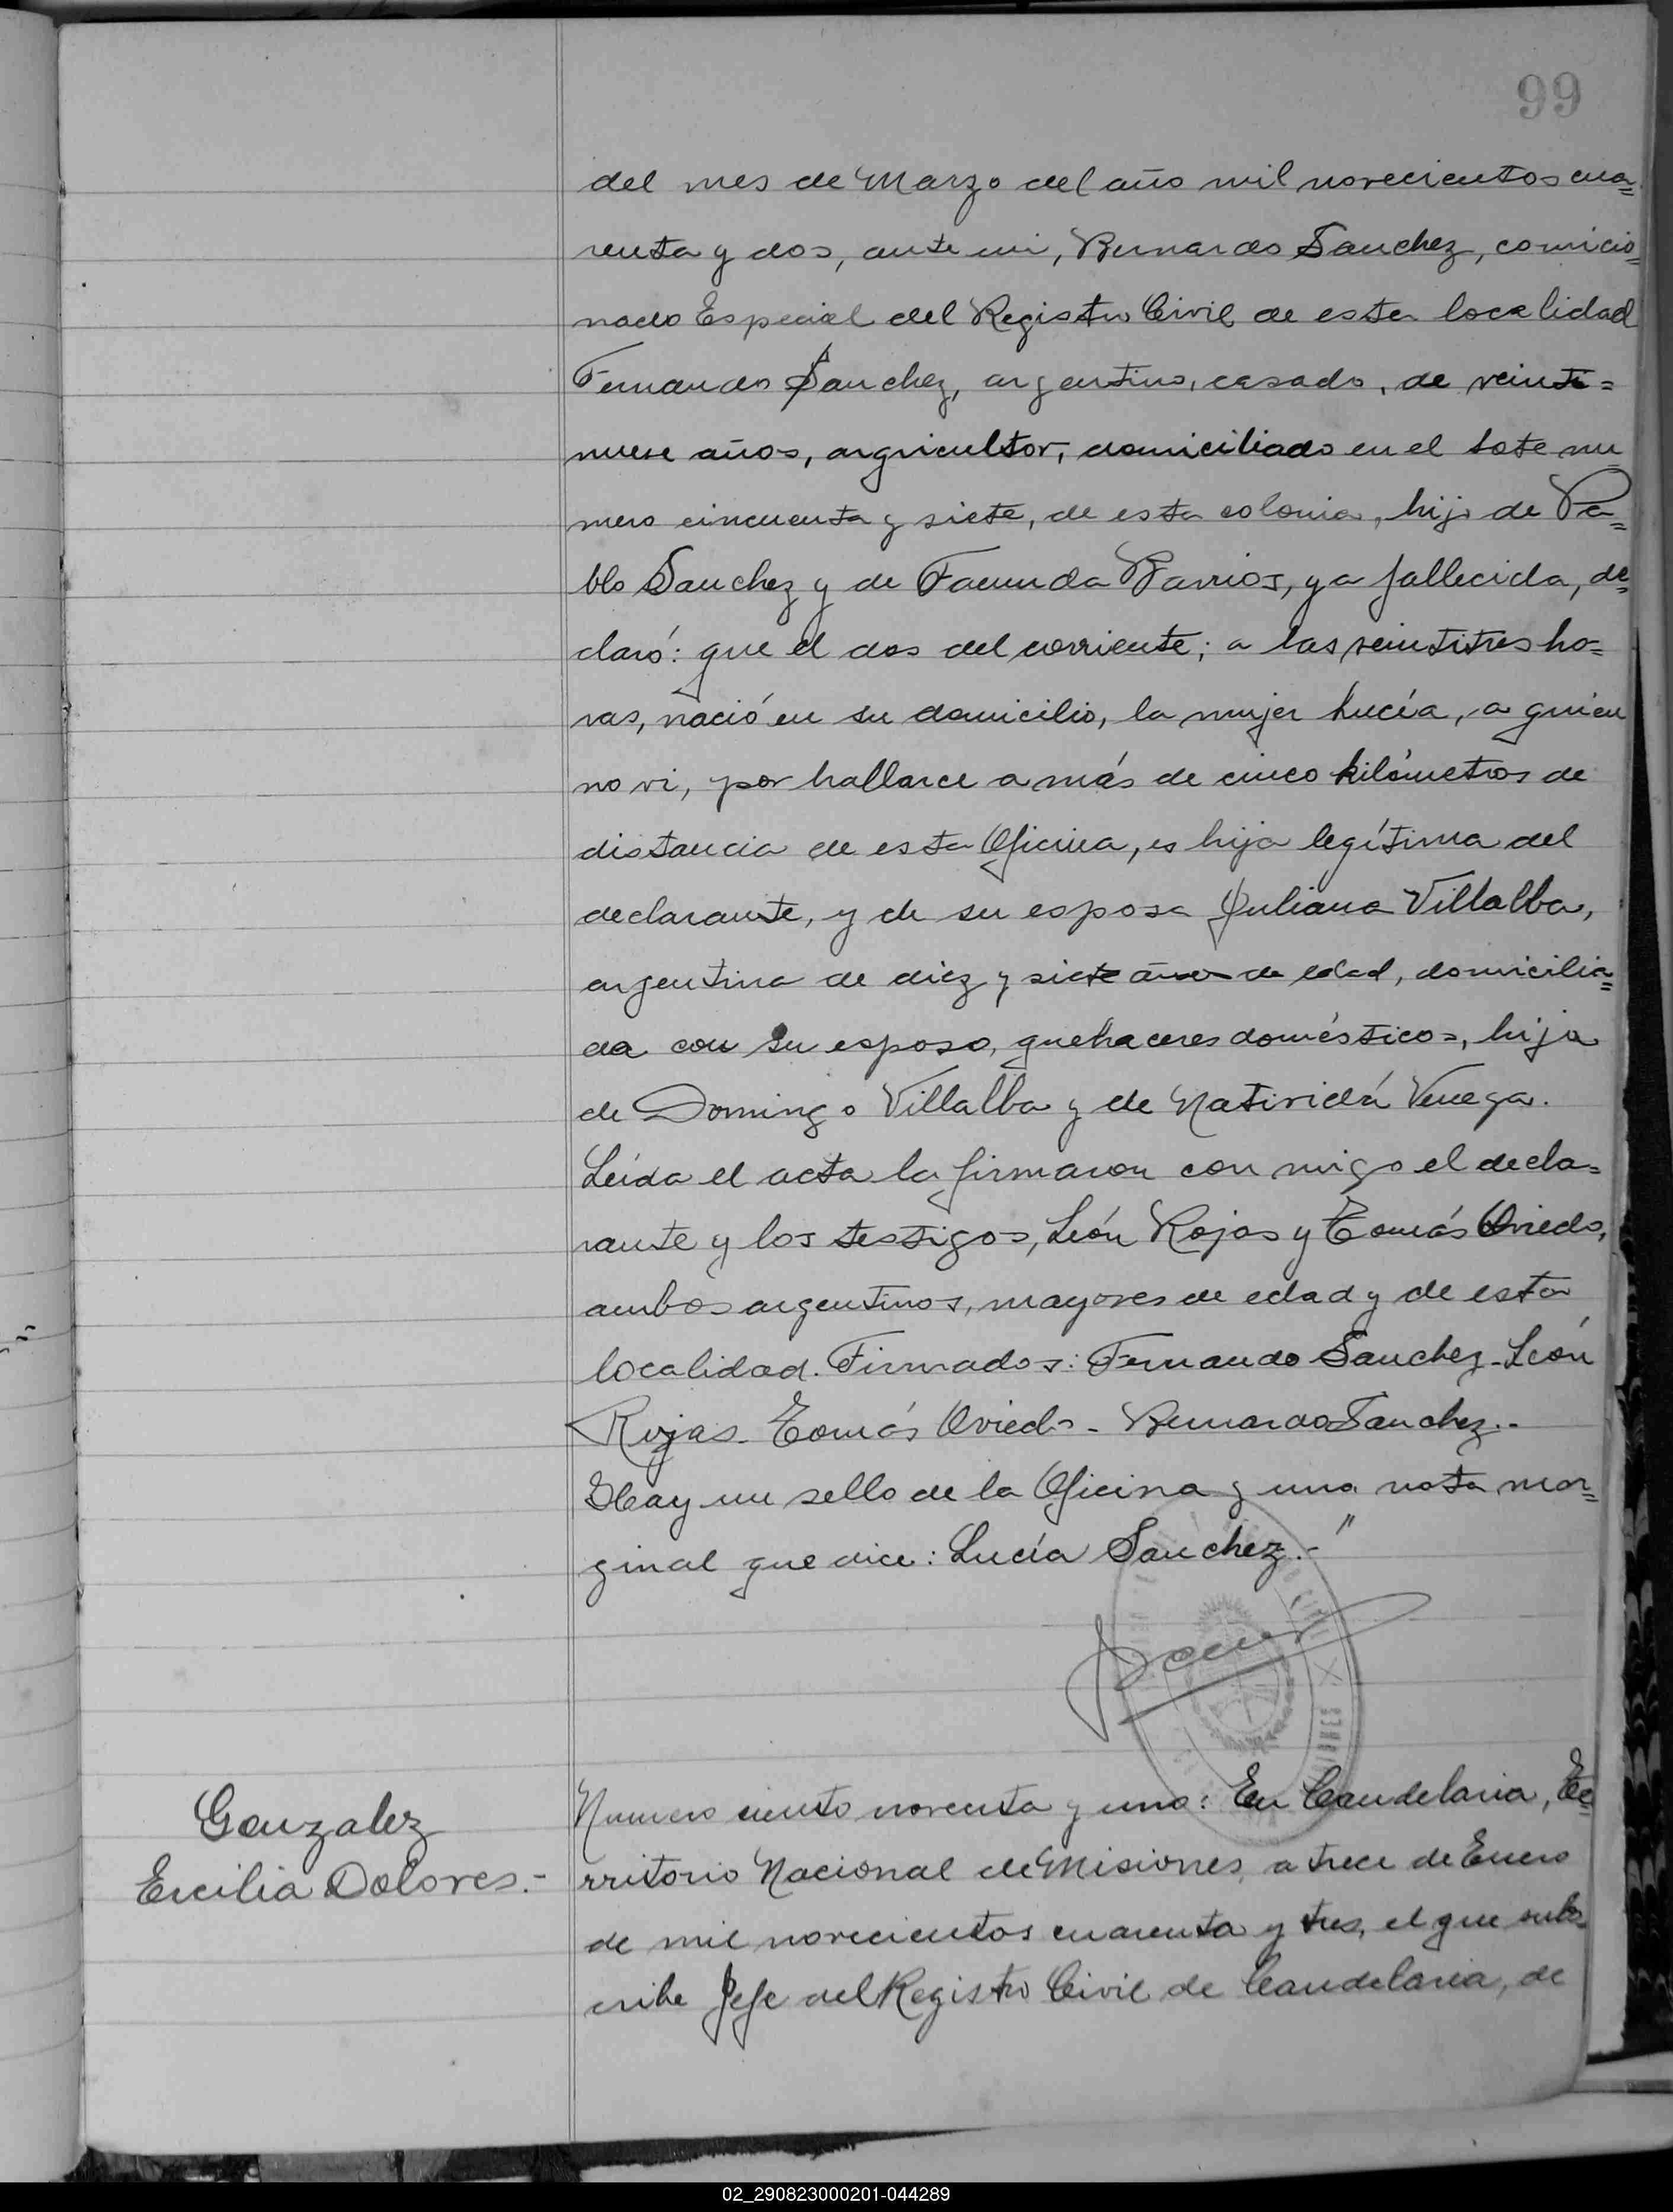 99
del mes de Marzo del año mil novecientos cua=
renta y dos, ante mi, Bernardo Sanchez, comicio=
nado Especial del Registro Civil de esta localidad
Fernando Sanchez, argentino, casado, de veinti=
nueve años, argricultor, domiciliado en el lote nu
mero cincuenta y siete, de esta colonia, hijo de Pa=
blo Sanchez y de Facunda Barrios, ya fallecida, de=
claró: que el dos del corriente; a las veintitres ho=
ras, nació en su domicilio, la mujer Lucía, a quien
no vi, por hallarce a más de cinco kilómetros de
distancia de esta Oficina, es hija legítima del
declarante, y de su esposa Juliana Villalba,
argentina de diez y siete años de edad, domicilia=
da con su esposo, quehaceres domésticos, hija
de Domingo Villalba y de Natividá Venega.
Leída el acta la firmaron con migo el decla=
rante y los testigos, León Rojas y Tomás Oviedo,
ambos argentinos, mayores de edad y de esta
localidad. Firmados: Fernando Sanchez - León
Rojas - Tomás Oviedo - Bernardo Sanchez.-
Hay un sello de la Oficina y una nota mar=
ginal que dice: Lucía Sanchez.-"
Gonzalez
Ercilia Dolores.-
Numero ciento noventa y uno: En Candelaria, Te=
rritorio Nacional de Misiones, a trece de Enero
de mil novecientos cuarenta y tres, el que subs
cribe Jefe del Registro Civil de Candelaria, de
02_290823000201-044289